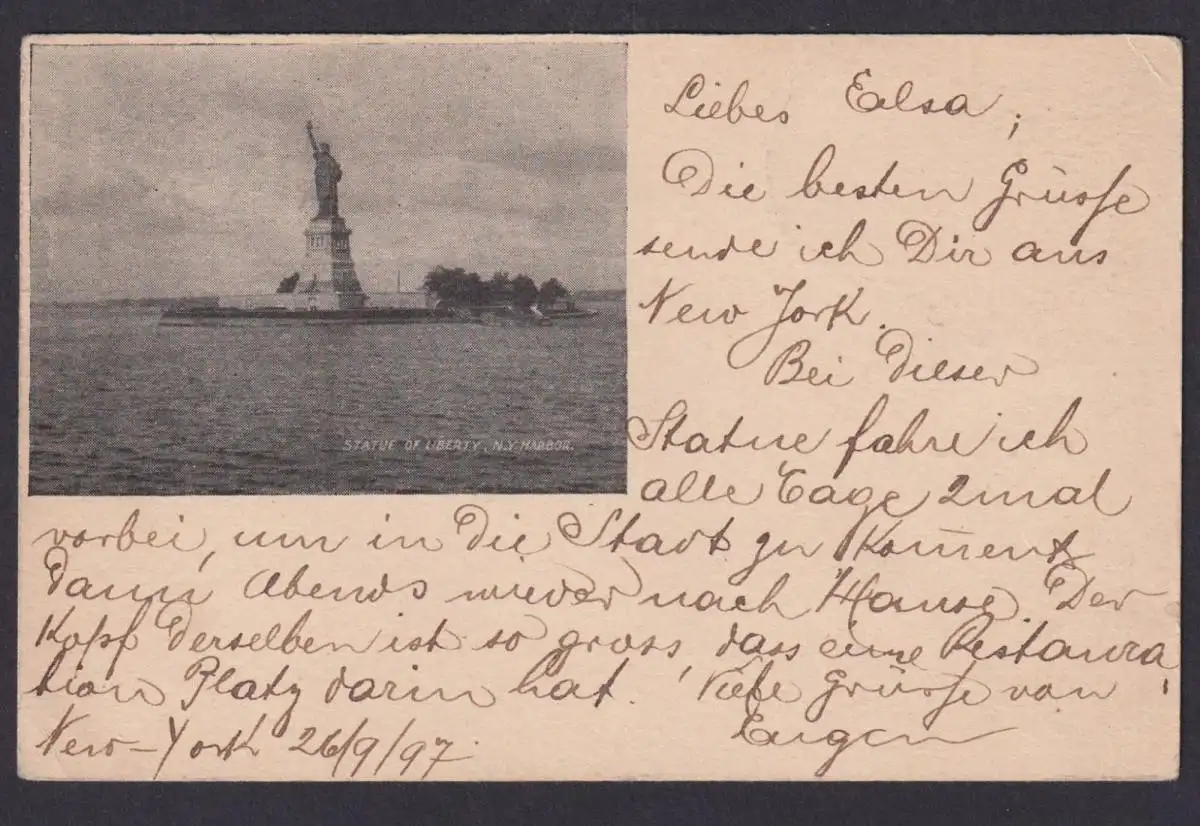 STATUE OF LIBERTY, N.Y. HARBOR.
Liebes Ealsa,
Die besten Grüsse
sende ich Dir aus
New York.
Bei dieser
Statue fahre ich
alle Tage 2mal
vorbei, um in die Stadt zu kom̄en &
dann Abends wieder nach Hause. Der
Kopf derselben ist so gross, dass eine Restaura
tion Platz darin hat. Viele Grüsse von
New-York 26/9/97. Eugen